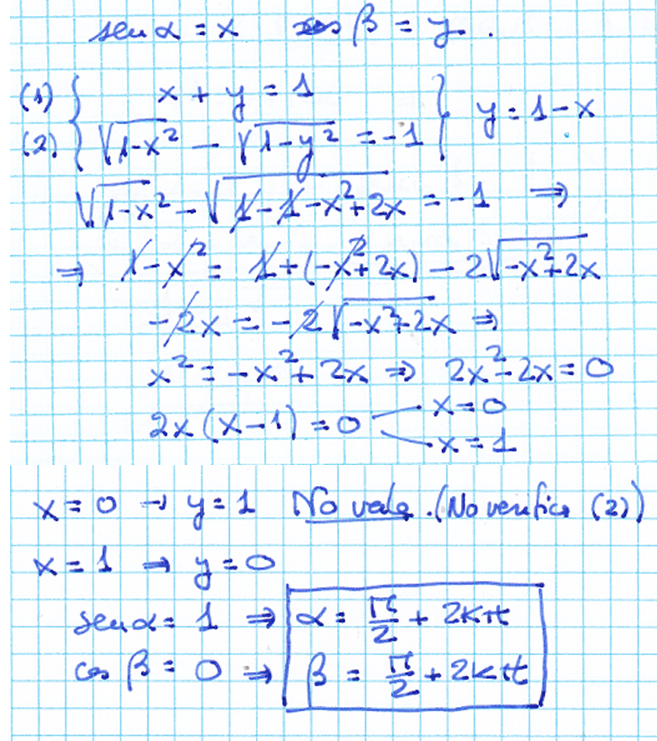 sen α = x   cos β = y.
(1) { x + y = 1 } y = 1 - x
(2) { √(1-x²) - √(1-y²) = -1
√(1-x²) - √(1-1-x²+2x) = -1 ⇒
⇒ 1 - x² = 1 + (-x²+2x) - 2√(-x²+2x)
-2x = -2√(-x²+2x) ⇒
x² = -x² + 2x ⇒ 2x² - 2x = 0
2x(x-1) = 0   x = 0
x = 1
x = 0 → y = 1 No vale. (No verifica (2))
x = 1 → y = 0
sen α = 1 ⇒ α = π/2 + 2kπ
cos β = 0 ⇒ β = π/2 + 2kπ